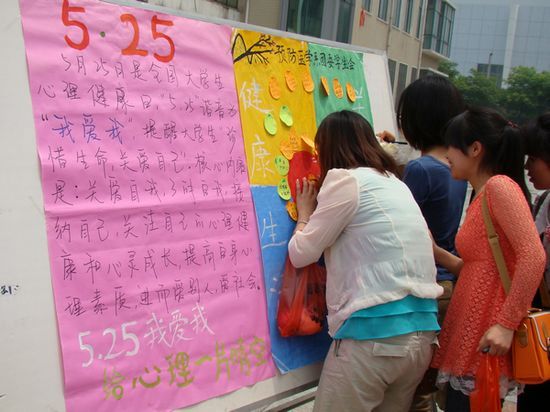 5·25
5月25日是全国大学生
心理健康日,"5·25"谐音为
"我爱我",提醒大学生"珍
惜生命,关爱自己".核心内容
是:关爱自我,了解自我,接
纳自己,关注自己的心理健
康和心灵成长,提高自身心
理素质,进而爱别人,爱社会.
5.25 我爱我
给心理一片晴空
预防医学系团委学生会
健康
生